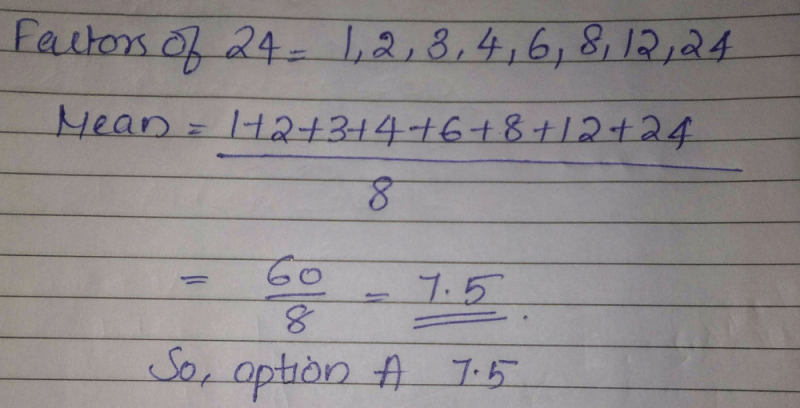 Factors of 24 = 1, 2, 3, 4, 6, 8, 12, 24
Mean = 1+2+3+4+6+8+12+24
8
= 60/8 = 7.5.
So, option A 7.5